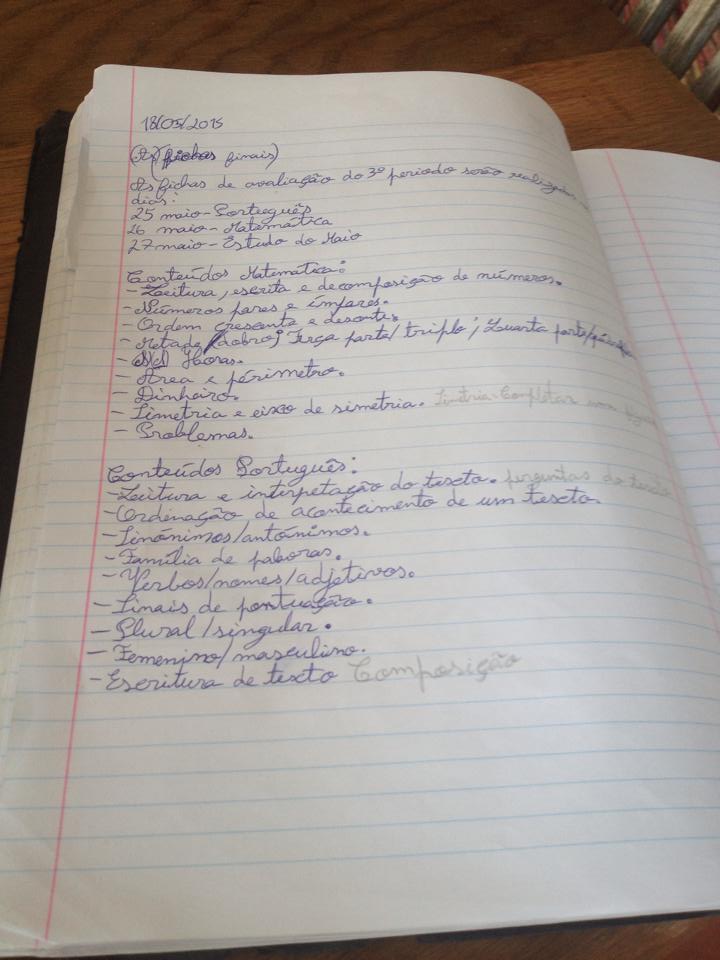 18/05/2015
(As fichas finais)
As fichas de avaliação do 3º periodo serão realizadas
dias:
25 maio-Português
26 maio-Matemática
27 maio-Estudo do Meio
Conteúdos Matemática:
-Leitura, escrita e decomposição de números.
-Números pares e ímpares.
-Ordem crescente e descente.
-Metade (dobro) Terça parte/triplo; Quarta parte/
- Horas.
-Área e périmetro.
-Dinheiro.
-Simetria e eixco de simetria. Simetria-Completar uma
-Problemas.
Conteúdos Português:
-Leitura e interpetação do texcto. perguntas do texcto
-Ordenação de acontecimento de um texcto.
-Sinónimos/antónimos.
-Família de palavras.
-Verbos/nomes/adjetivos.
-Sinais de pontuação.
-Plural/singular.
-Femenino/masculino.
-Escritura de texcto Composição